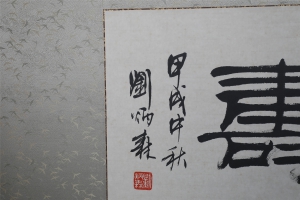 壽
甲戌中秋
劉炳森